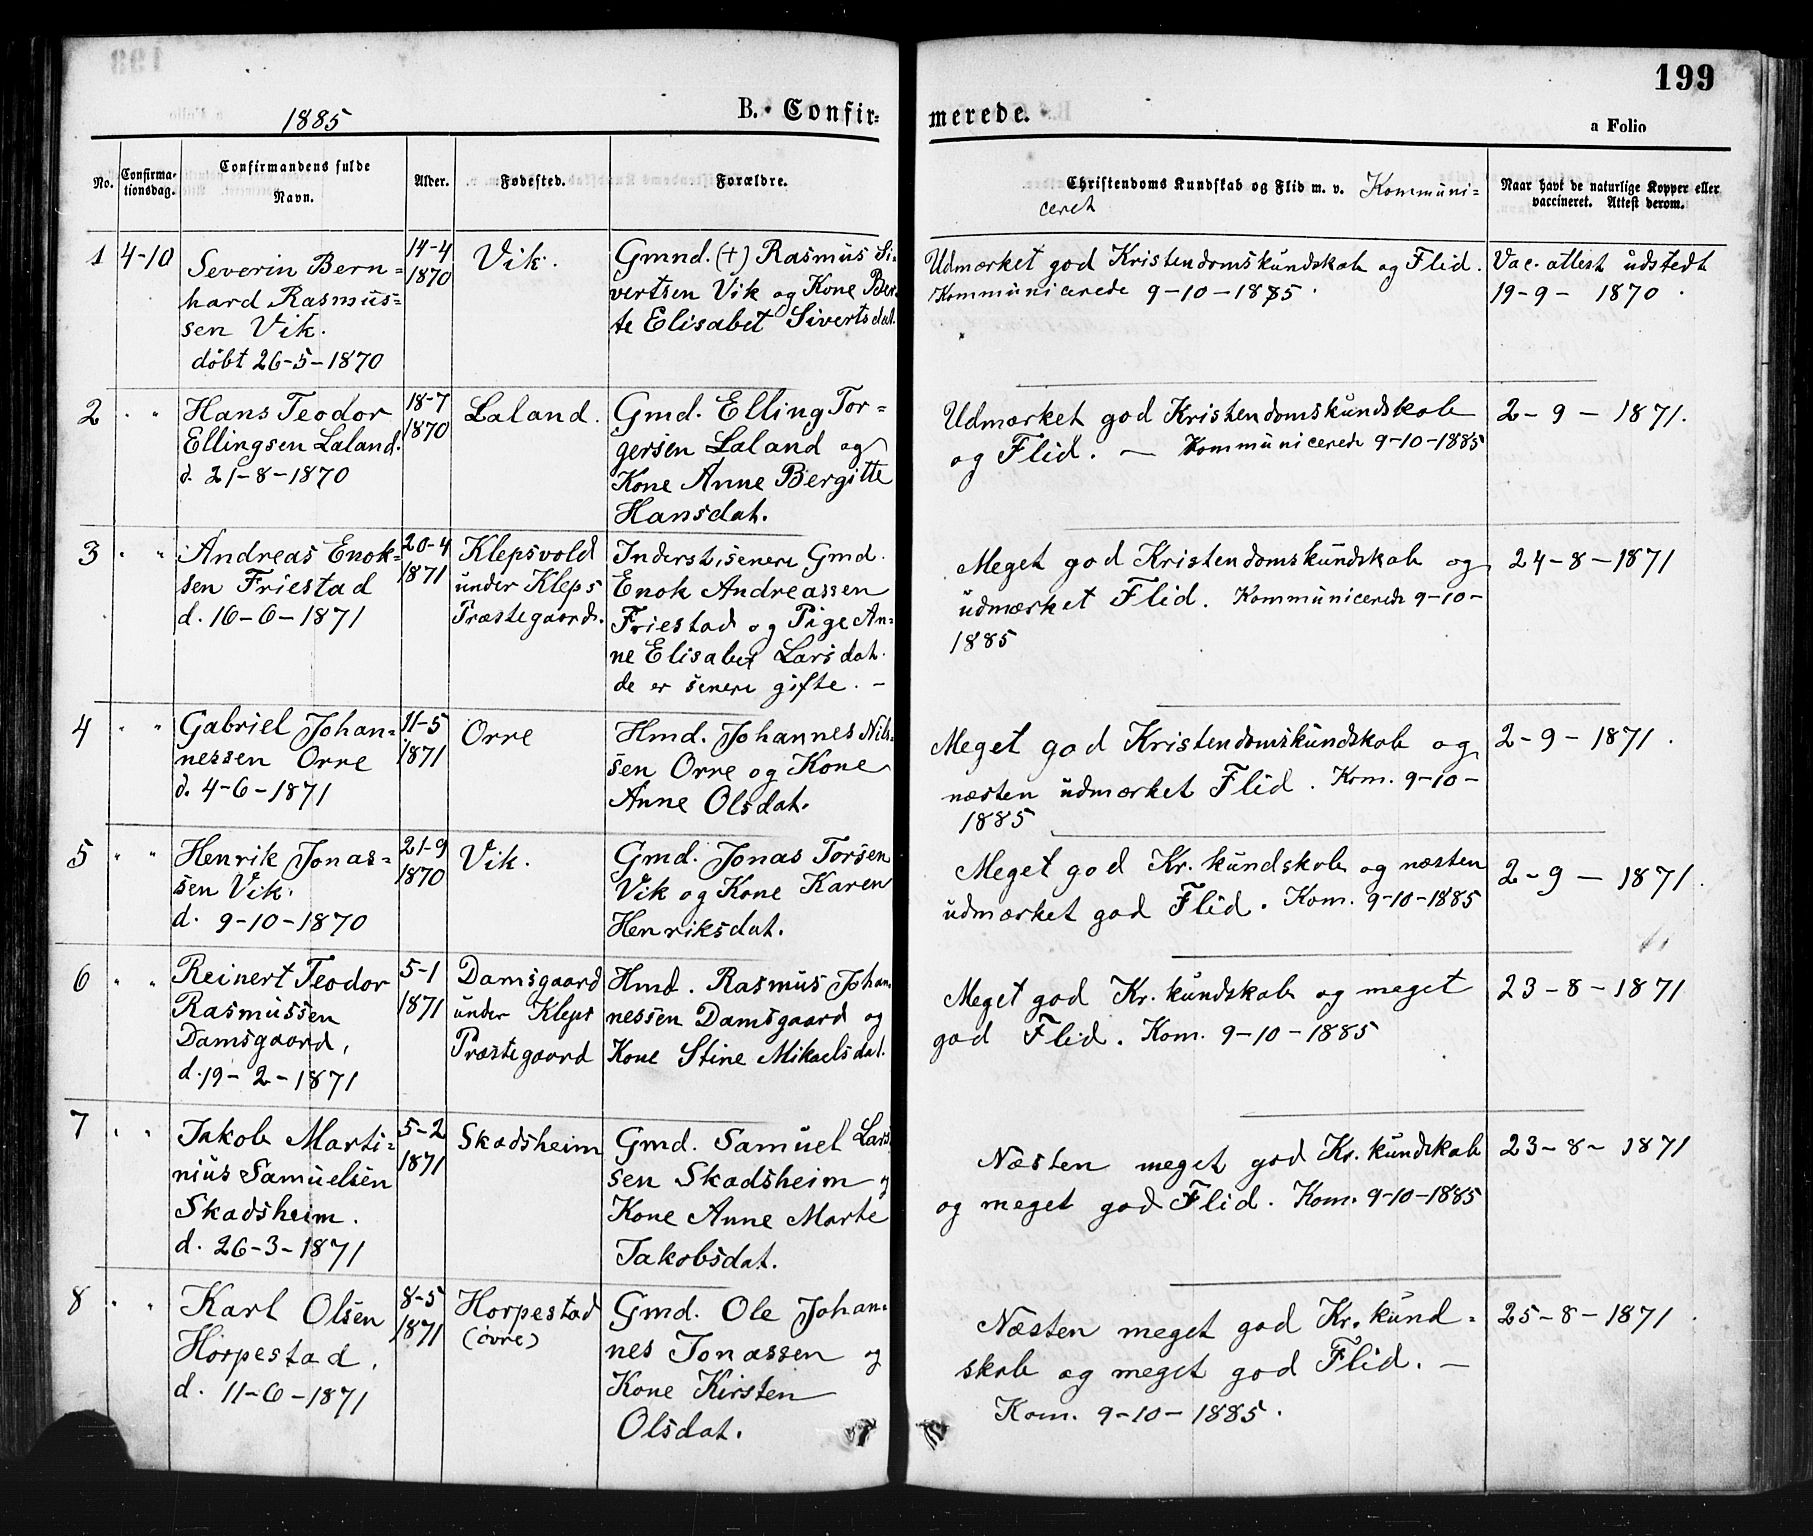 199
1885
B. Confirmerede.
a Folio
No.
Confirma-
tionsdag.
Confirmandens fulde
Navn.
Alder.
Fødested.
Forældre.
Christendoms Kundskab og Flid m. v. Kommuni-
ceret
Naar havt de naturlige Kopper eller
vaccineret. Attest derom.
1 4-10
Severin Bern-
hard Rasmus-
sen Vik.
døbt 26-5-1870
14-4
1870
Vik.
Gmnd. (+) Rasmus Si-
vertsen Vik og Kone Ber-
te Elisabet Sivertsdat.
Udmærket god Kristendomskundskab og Flid.
Kommunicerede 9-10-1885.
Vac. attest udstedt
19-9- 1870.
2 " "
Hans Teodor
Ellingsen Laland.
d. 21-8-1870
18-7
1870
Laland.
Gmd. Elling Tor-
gersen Laland og
Kone Anne Bergitte
Hansdat.
Udmærket god Kristendomskundskab
og Flid. — Kommunicerede 9-10-1885
2-9-1871.
3 " "
Andreas Enok-
sen Friestad
d. 16-6-1871
20-4
1871
Klepsvold
under Kleps
Præstegaard.
Inderst, senere Gmd.
Enok Andreassen
Friestad og Pige An-
ne Elisabet Larsdat.
de er senere gifte. -
Meget god Kristendomskundskab og
udmærket Flid. Kommunicerede 9-10-
1885
24-8-1871
4 " "
Gabriel Johan-
nessen Orre
d. 4-6-1871
11-5
1871
Orre
Hmd. Johannes Nils-
sen Orre og Kone
Anne Olsdat.
Meget god Kristendomskundskab og
næsten udmærket Flid. Kom. 9-10-
1885
2-9-1871.
5 " "
Henrik Jonas-
sen Vik.
d. 9-10-1870
21-9
1870
Vik.
Gmd. Jonas Torsen
Vik og Kone Karen
Henriksdat.
Meget god Kr. kundskab og næsten
udmærket god Flid. Kom. 9-10-1885
2-9-1871.
6 " "
Reinert Teodor
Rasmussen
Damsgaard,
d. 19-2-1871
5-1
1871
Damsgaard
under Kleps
Præstegaard
Hmd. Rasmus Johan-
nessen Damsgaard og
Kone Stine Mikaelsdat.
Meget god Kr. kundskab og meget
god Flid. Kom. 9-10-1885
23-8-1871
7 " "
Jakob Marti-
nius Samuelsen
Skadsheim.
d. 26-3-1871
5-2
1871
Skadsheim
Gmd. Samuel Lars-
sen Skadsheim og
Kone Anne Marte
Jakobsdat.
Næsten meget god Kr. kundskab
og meget god Flid. Kom. 9-10-1885
23-8-1871
8 " "
Karl Olsen
Horpestad.
d. 11-6-1871
8-5
1871
Horpestad
(øvre)
Gmd. Ole Johan-
nes Jonassen og
Kone Kirsten
Olsdat.
Næsten meget god Kr. kund-
skab og meget god Flid. —
Kom. 9-10-1885.
25-8-1871